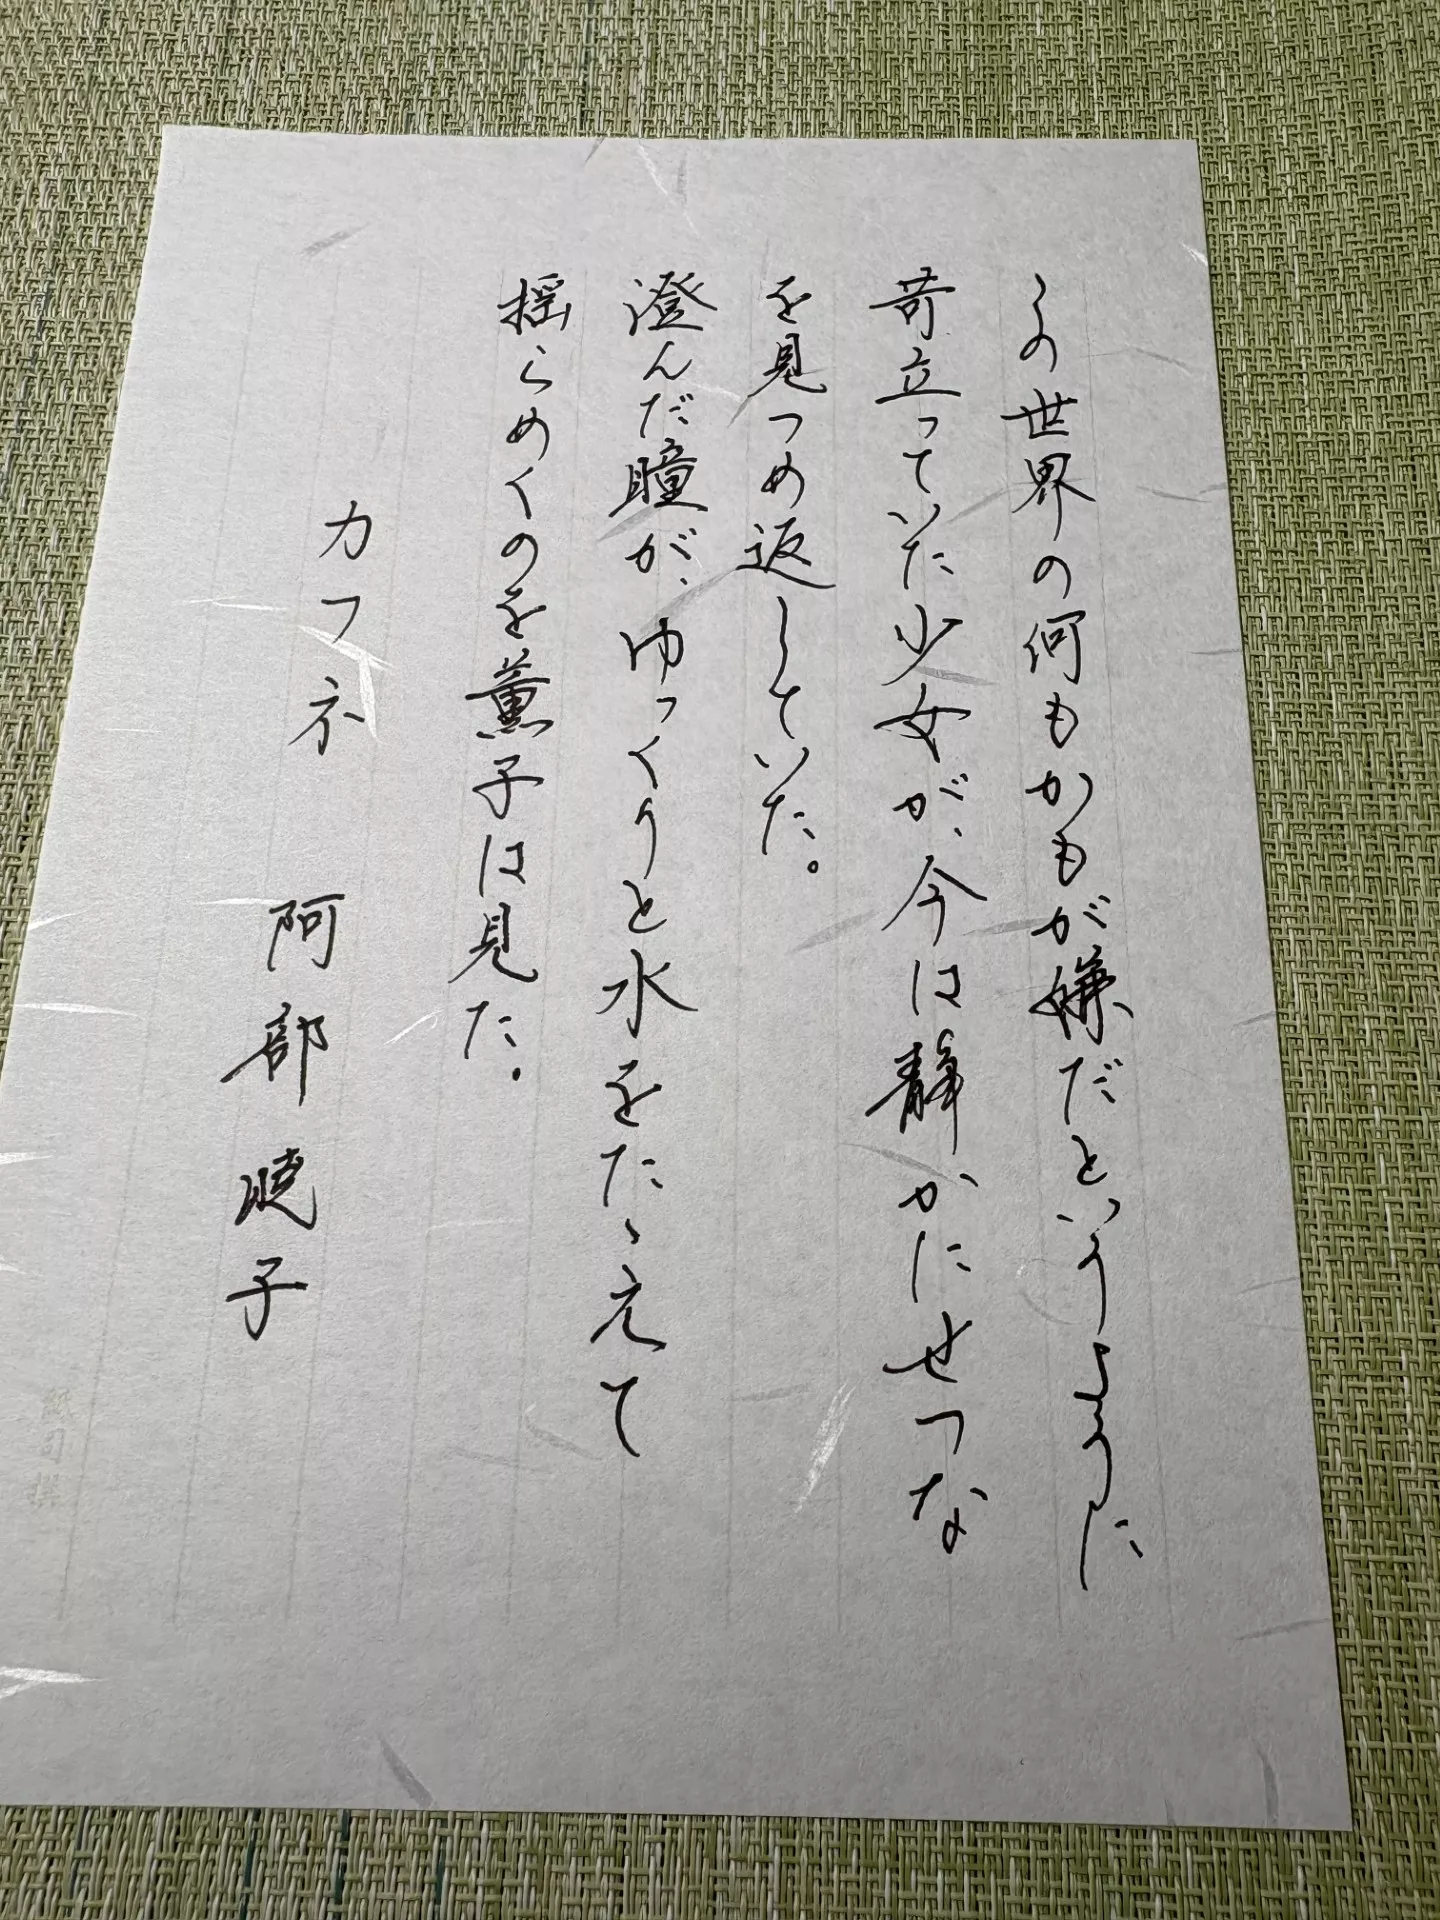 この世界の何もかもが嫌だというように
苛立っていた少女が、今は静かにせつな
を見つめ返していた。
澄んだ瞳が、ゆっくりと水をたゝえて
揺らめくのを薫子は見た。
カフネ 阿部暁子